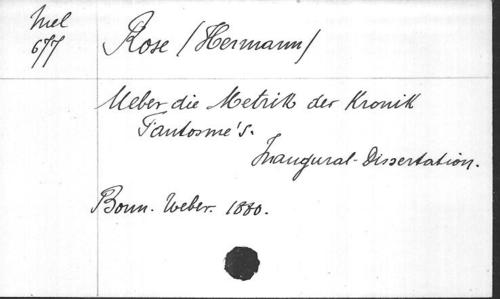 Mel
677
Rose (Hermann)
Ueber die Metrik der Kronik
Fantosme's.
Inaugural-Dissertation.
Bonn. Weber. 1880.